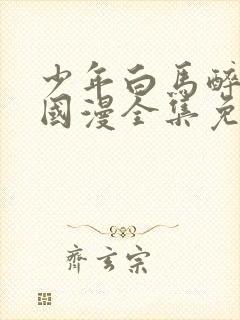 少年白馬醉
國漫全集免
齊玄宗